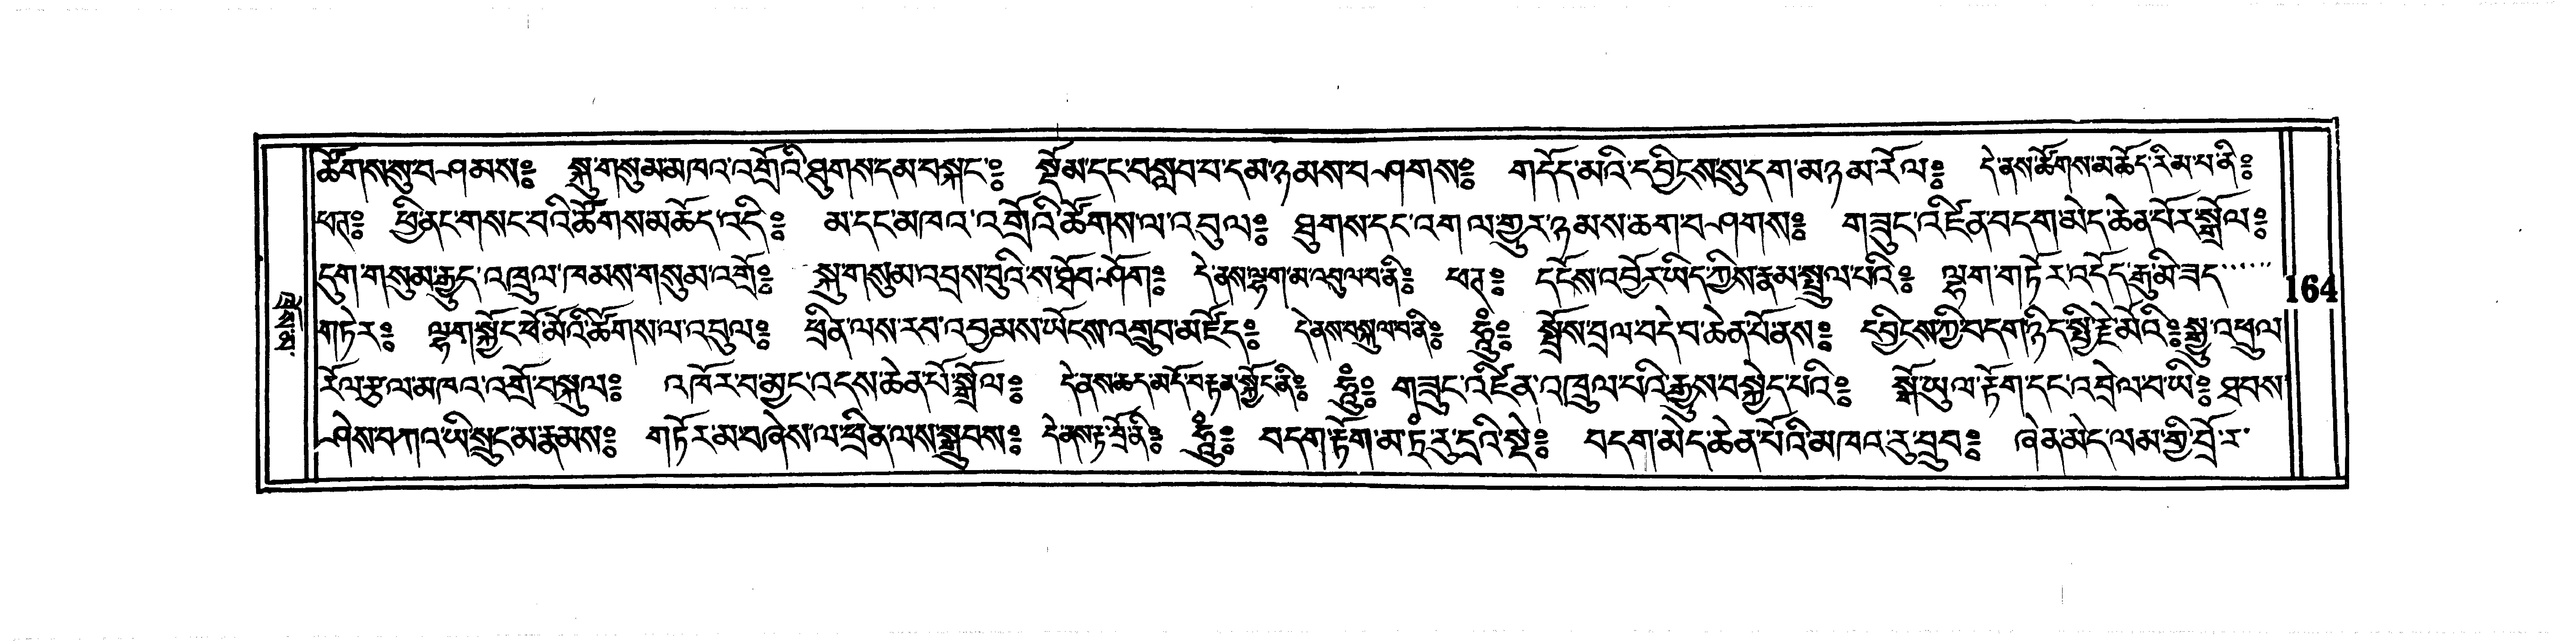 ཚོགས་སུ་བཤམས༔ སྐུ་གསུམ་མཁའ་འགྲོའི་ཐུགས་དམ་བསྐང་༔ སྡོམ་དང་བསླབ་པ་དམ་ཉམས་བཤགས༔ གདོད་མའི་དབྱིངས་སུ་དག་མཉམ་རོལ༔ དེ་ནས་ཚོགས་མཆོད་རིམ་པ་ནི༔
ཕཊ༔ ཕྱི་ནང་གསང་བའི་ཚོགས་མཆོད་འདི༔ མ་དང་མཁའ་འགྲོའི་ཚོགས་ལ་འབུལ༔ ཐུགས་དང་འགལ་གྱུར་ཉམས་ཆག་བཤགས༔ གཟུང་འཛིན་བདག་མེད་ཆེན་པོར་སྒྲོལ༔
དུག་གསུམ་རྒྱུད་འཁྲུལ་ཁམས་གསུམ་འགྲོ༔ སྐུ་གསུམ་འབྲས་བུའི་ས་ཐོབ་ཤོག༔ དེ་ནས་ལྷག་མ་འབུལ་བ་ནི༔ ཕཊ༔ དངོས་འབྱོར་ཡིད་ཀྱིས་རྣམ་སྤྲུལ་པའི༔ ལྷག་གཏོར་འདོད་རྒུ་མི་ཟད་......
གཏེར༔ ལྷག་སྐྱོང་ཕོ་མོའི་ཚོགས་ལ་འབུལ༔ ཕྲིན་ལས་རབ་འབྱམས་ཡོངས་འགྲུབ་མཛོད༔ དེ་ནས་བསྐུལ་བ་ནི༔ ཧཱུྃ༔ སྤྲོས་བྲལ་བདེ་བ་ཆེན་པོ་ནས༔ དབྱིངས་ཀྱི་བདག་ཉིད་སྤྱི་རྗེ་མོའི༔ སྒྱུ་འཕྲུལ
རོལ་རྩལ་མཁའ་འགྲོ་བསྐུལ༔ འཁོར་བ་མྱང་འདས་ཆེན་པོ་སྒྲོལ༔ དེ་ནས་ཆད་མདོ་བརྟན་སྐྱོང་ནི༔ ཧཱུྃ༔ གཟུང་འཛིན་འཁྲུལ་པའི་རྒྱུས་བསྐྱེད་པའི༔ སྒོ་ཡུལ་རྟོག་དང་འབྲེལ་བ་ཡི༔ ཐབས
ཤེས་བཀའ་ཡི་སྲུང་མ་རྣམས༔ གཏོར་མ་བཞེས་ལ་ཕྲིན་ལས་སྒྲུབས༔ དེ་ནས་རྟ་བྲོ་ནི༔ ཧཱུྃ༔ བདག་རྟོག་མ་ཏྲཾ་རུ་དྲའི་སྡེ༔ བདག་མེད་ཆེན་པོའི་མཁའ་རུ་བྲུབ༔ ཞེན་མེད་ལམ་གྱི་བྲོ་ར་
164